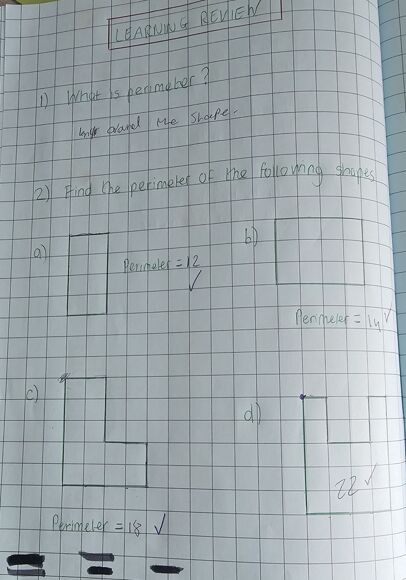 LEARNING REVIEW
1) What is perimeter?
around the shape.
2) Find the perimeter of the following shapes
a)
Perimeter = 12
b)
Perimeter = 14
c)
d)
22
Perimeter = 18